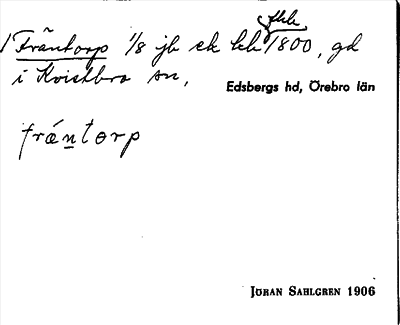 Fräntorp 1/8 jb sk kk 1800, gd
i Kvistbro sn,
Edsbergs hd, Örebro län
fräntorp
JÖRAN SAHLGREN 1906